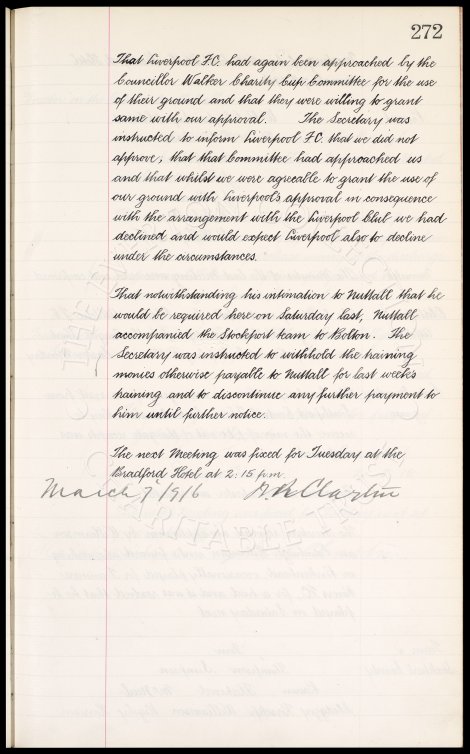 272
That Liverpool F.C. had again been approached by the
Councillor Walker Charity Cup Committee for the use
of their ground and that they were willing to grant
same with our approval. The Secretary was
instructed to inform Liverpool F.C. that we did not
approve, that that Committee had approached us
and that whilst we were agreeable to grant the use of
our ground with Liverpool's approval in consequence
with the arrangement with the Liverpool Club we had
declined and would expect Liverpool also to decline
under the circumstances.
That notwithstanding his intimation to Nuttall that he
would be required here on Saturday last, Nuttall
accompanied the Stockport team to Bolton. The
Secretary was instructed to withhold the training
monies otherwise payable to Nuttall for last week's
training and to discontinue any further payment to
him until further notice.
The next Meeting was fixed for Tuesday at the
Bradford Hotel at 2:15 p.m.
March 7 1916